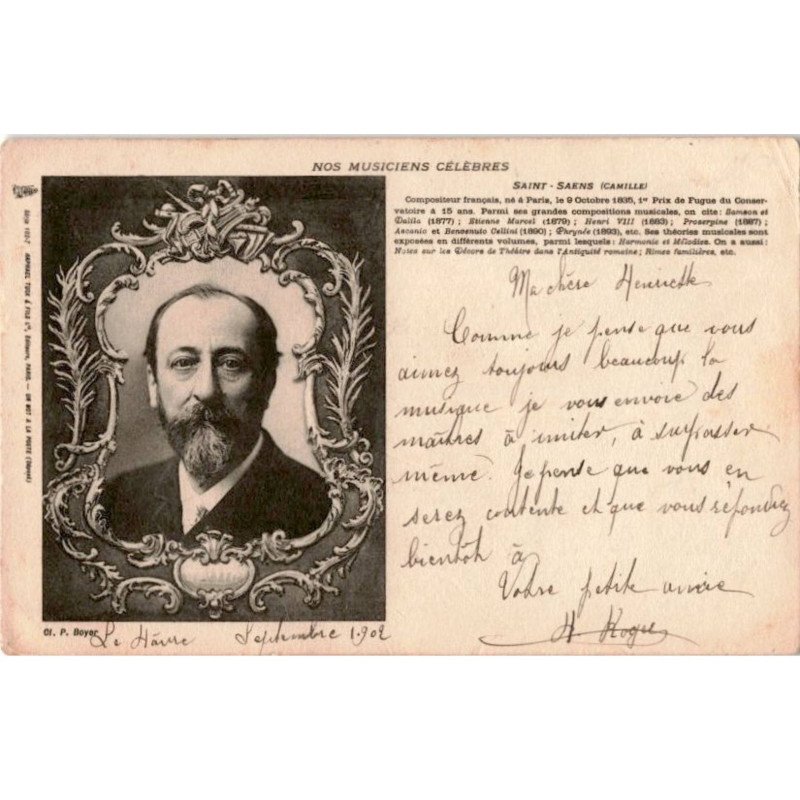 NOS MUSICIENS CÉLÈBRES
SAINT-SAENS (CAMILLE)
Compositeur français, né à Paris, le 9 Octobre 1835, 1er Prix de Fugue du Conser-
vatoire à 15 ans. Parmi ses grandes compositions musicales, on cite: Samson et
Dalila (1877); Etienne Marcel (1879); Henri VIII (1883); Proserpine (1887);
Ascanio et Benvenuto Cellini (1890); Phrynée (1893), etc. Ses théories musicales sont
exposées en différents volumes, parmi lesquels: Harmonie et Mélodise. On a aussi:
Notes sur les Décors de Théâtre dans l'Antiquité romaine; Rimes familières, etc.
Ma chère Henriette
Comme je pense que vous
aimez toujours beaucoup la
musique je vous envoie des
maîtres à imiter, à surpasser
même. Je pense que vous en
serez contente et que vous répondrez
bientôt à
Votre petite amie
H
RAPHAEL TUCK & FILS Lᵈ, Éditeurs, PARIS. — UN MOT A LA POSTE (Déposé)
Cl. P. Boyer
Le Hâvre Septembre 1902